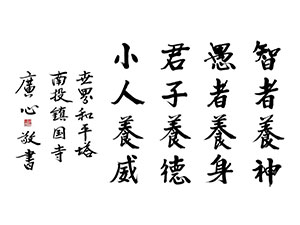 智者養神
愚者養身
君子養德
小人養威
世界和平塔
南投鎮国寺
廣心敬書